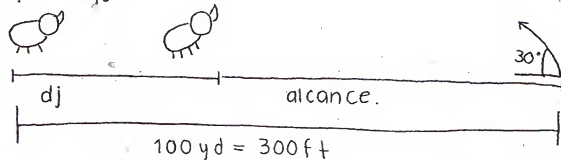 30°
dj alcance.
100 yd = 300ft